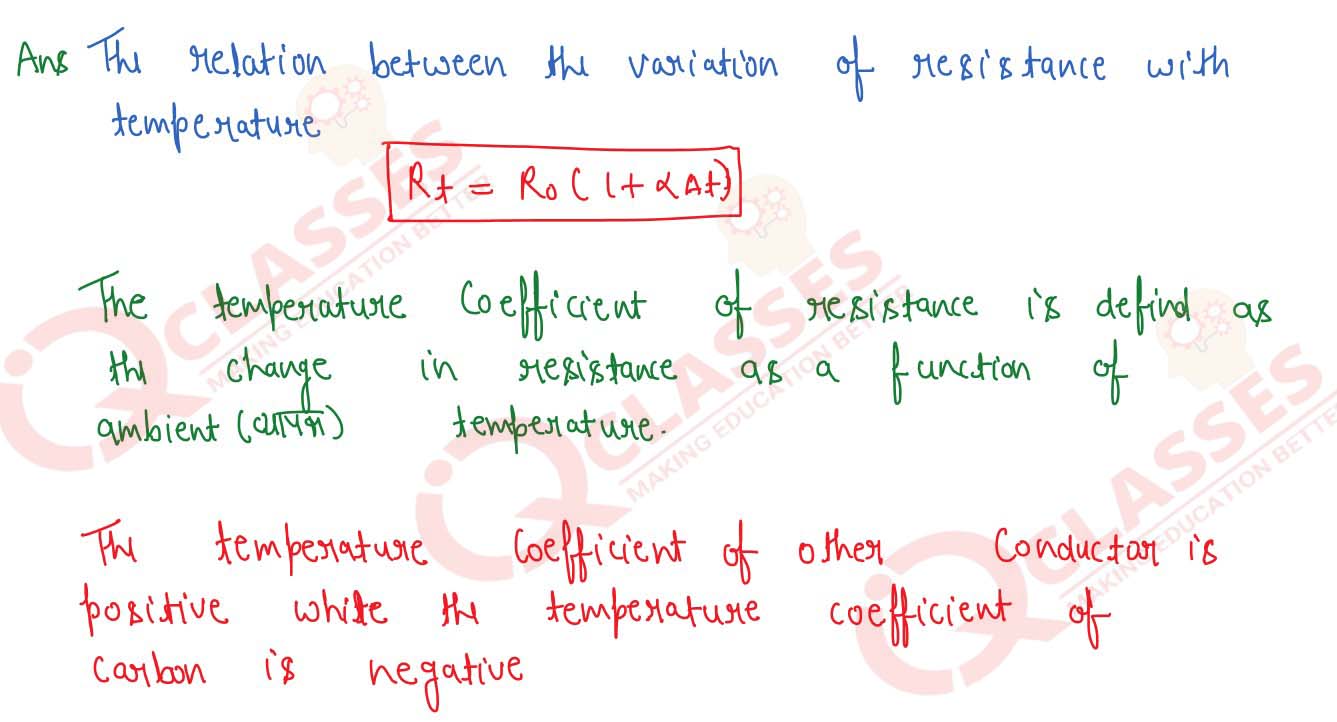 Ans The relation between the variation of resistance with
temperature
Rt = Ro ( 1 + α Δt)
The temperature Coefficient of resistance is defind as
the change in resistance as a function of
ambient ( ) temperature.
The temperature Coefficient of other Conductar is
positive while the temperature coefficient of
carbon is negative
iQ CLASSES
MAKING EDUCATION BETTER
iQ CLASSES
MAKING EDUCATION BETTER
iQ CLASSES
MAKING EDUCATION BETTER